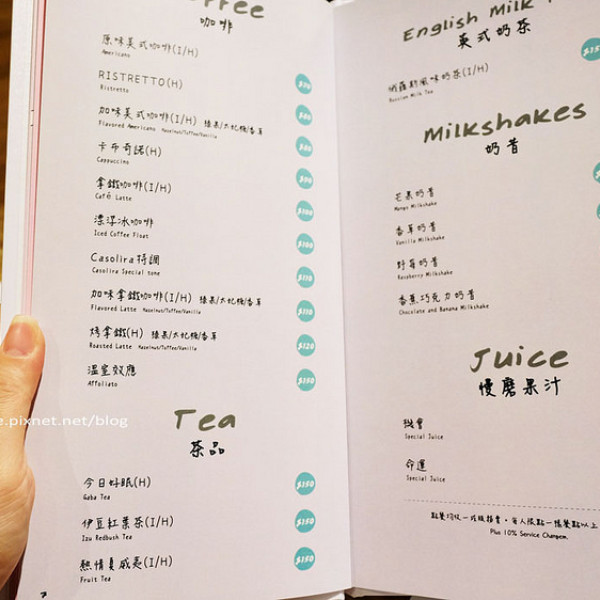 Coffee
咖啡
原味美式咖啡(I/H)
Americano
RISTRETTO(H)
Ristretto
$70
加味美式咖啡(I/H) 榛果/太妃糖/香草
Flavored Americano Hazelnut/Toffee/Vanilla
$80
卡布奇諾(H)
Cappuccino
$80
拿鐵咖啡(I/H)
Café Latte
$90
漂浮冰咖啡
Iced Coffee Float
$100
Casolira特調
Casolira Special tone
$100
加味拿鐵咖啡(I/H) 榛果/太妃糖/香草
Flavored Latte Hazelnut/Toffee/Vanilla
$110
烤拿鐵(H) 榛果/太妃糖/香草
Roasted Latte Hazelnut/Toffee/Vanilla
$110
$120
溫室效應
Affoliato
$150
Tea
茶品
今日好眠(H)
Gaba Tea
$150
伊豆紅葉茶(I/H)
Izu Redbush Tea
$150
熱情真感亮(I/H)
Fruit Tea
$150
e.pixnet.net/blog
English Milk
英式奶茶
俄羅斯風味奶茶(I/H)
Russian Milk Tea
Milkshakes
奶昔
芒果奶昔
Mango Milkshake
香草奶昔
Vanilla Milkshake
野莓奶昔
Raspberry Milkshake
香蕉巧克力奶昔
Chocolate and Banana Milkshake
Juice
慢磨果汁
機會
Special Juice
命運
Special Juice
Plus 10% Service Charge